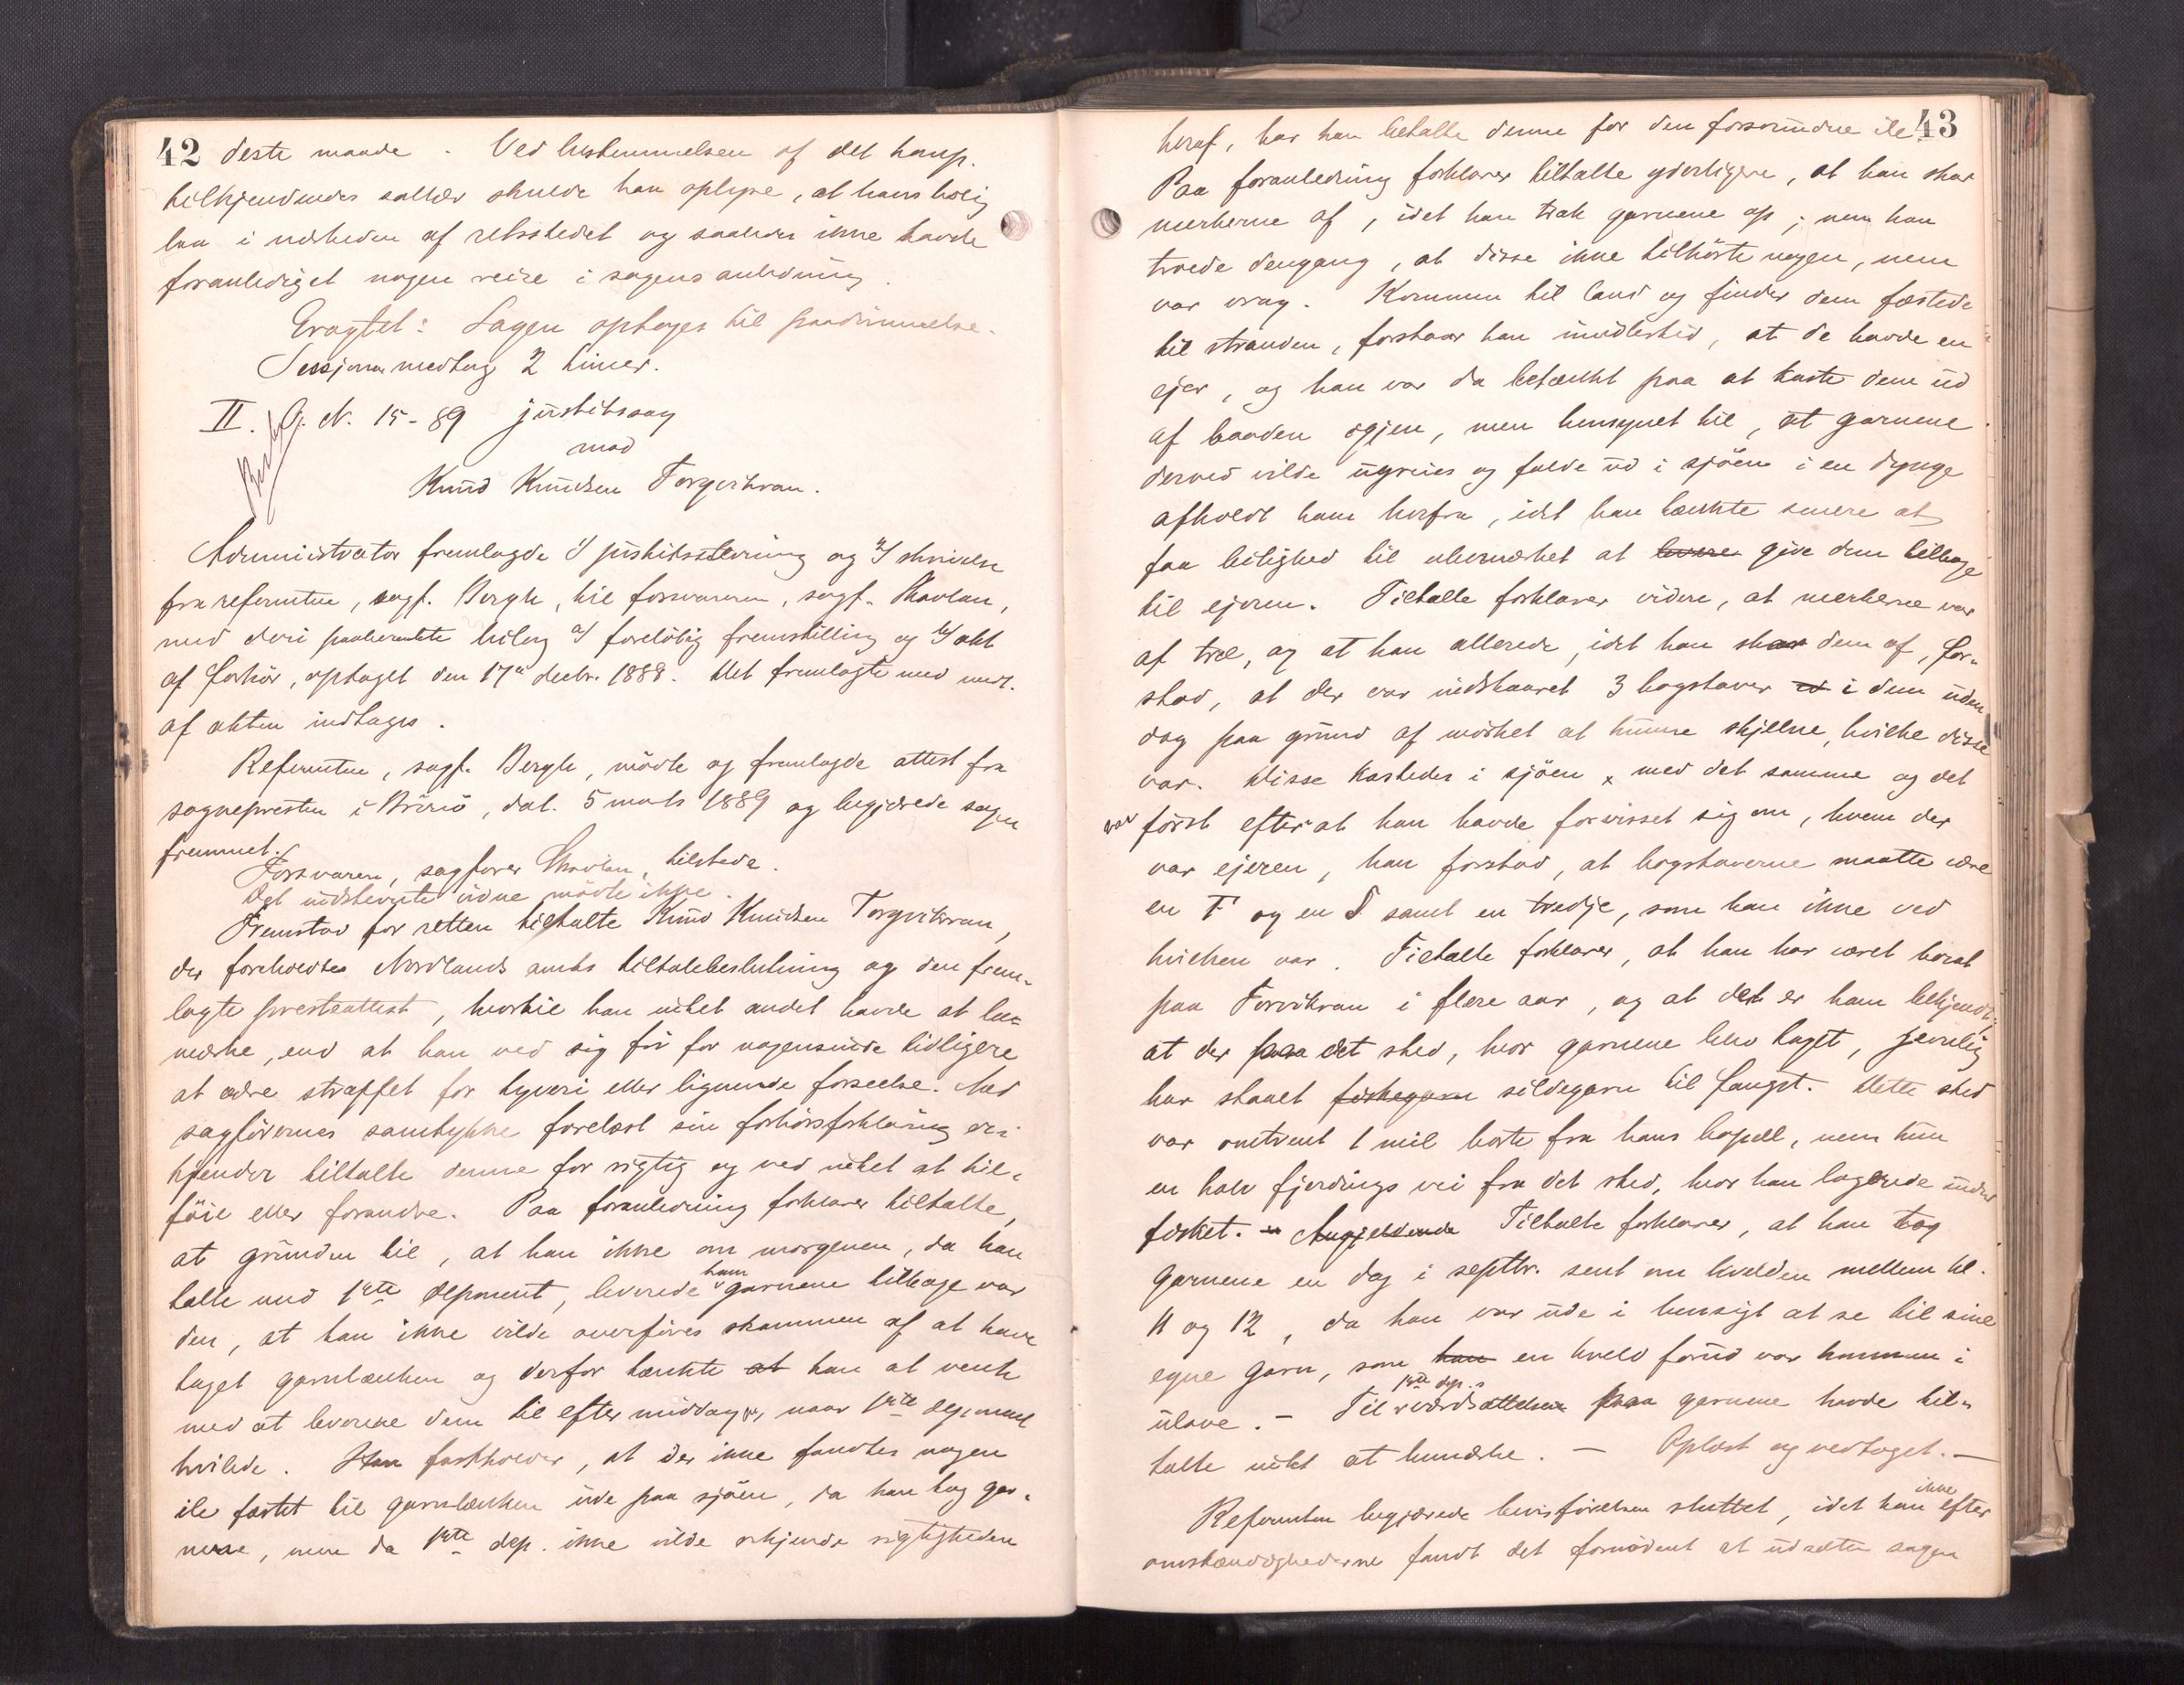 42 deste maade. Ved bestemmelsen af det ham p.
tilkjendendes sallær skulde han oplyse, at hans bolig
laa i nærheden af retsstedet og saaledes ikke havde
foranlediget nogen reise i sagens anledning.
Eragtet: Sagen optages til paadömmelse.
Sessjonen medtog 2 timer.
II. G. N. 15-89 justitssag
mod
Knud Knudsen Torgvikvan.
Administrator fremlagde 1/ justitsstevning og 2/ skrivelse
fra referenten, sagf. Bergh, til forsvareren, sagf. Skavlan,
med deri paaberaabte bilag a/ foreløbig fremstilling og b/ akt
af forhör, optaget den 17de decbr. 1888. Det fremlagte med undt.
af akten indtages.
Referenten, sagf. Bergh, mödte og fremlagde attest fra
sognepresten i Brönö, dat. 5 marts 1889 og begjærede sagen
fremmet.
Forsvareren, sagförer Skavlan, tilstede.
Det indstevnte vidne mödte ikke.
Fremstod for retten tiltalte Knud Knudsen Torgvikvan,
der foreholdtes Nordlands amts tiltalebeslutning og den frem-
lagte presteattest, hvortil han intet andet havde at be-
mærke, end at han ved sig fri for nogensinde tidligere
at være straffet for tyveri eller lignende forseelse. Med
sagförernes samtykke forelæst sin forhörsforklaring ved-
kjender tiltalte denne for rigtig og ved intet at til-
föie eller forandre. Paa foranledning forklarer tiltalte,
at grunden til, at han ikke om morgenen, da han
talte med 1ste deponent, leverede ham garnene tilbage var
den, at han ikke vilde overföres skammen af at have
taget garnlænken og derfor tænkte at han at vente
med at levere dem til eftermiddagen, naar 1ste deponent
hvilede. Han fastholder, at der ikke fandtes nogen
ile fæstet til garnlænken ude paa sjöen, da han tog gar-
nene, men da 1ste dep. ikke vilde erkjende rigtigheden
43
heraf, har han betalt denne for den forsvundne ile
Paa foranledning forklarer tiltalte yderligere, at han skar
merkerne af, idet han trak garnene op; men han
troede dengang, at disse ikke tilhörte nogen, men
var vrag. Kommen til land og finder dem fæstede
til stranden, forstaar han imidlertid, at de havde en
ejer, og han var da betænkt paa at kaste dem ud
af baaden igjen, men hensynet til, at garnene
derved vilde ugreies og falde ud i sjöen i en dynge
afholdt ham herfra, idet han tænkte senere at
faa leilighed til ubemærket at levere give dem tilbage
til ejeren. Tiltalte forklarer videre, at merkerne var
af træ, og at han allerede, idet han skar dem af, for-
stod, at der var indskaaret 3 bogstaver i dem uden
dog paa grund af mörket at kunne skjelne, hvilke disse
var. Disse kastedes i sjöen x med det samme og det
var först efter at han havde forvisset sig om, hvem der
var ejeren, han forstod, at bogstaverne maatte være
en F og en S samt en tredje, som han ikke ved
hvilken var. Tiltalte forklarer, at han har været bosat
paa Torvikvan i flere aar, og at det er ham bekjendt,
at der paa det sted, hvor garnene blev taget, jevnlig
har staaet fiskegarn sildegarn til fangst. Dette sted
var omtrent 1 mil borte fra hans bopæl, men kun
en halv fjerdings vei fra det sted, hvor han lagerede under
fisket. Angjeldende Tiltalte forklarer, at han tog
garnene en dag i septbr. sent om kvelden mellem kl.
11 og 12, da han var ude i hensigt at se til sine
egne garn, som han en kveld forud var kommen i
ulave. – Til 1ste dep.s værdsættelse paa garnene havde til-
talte intet at bemærke. – Oplæst og vedtaget. –
Referenten begjærede bevisförelsen sluttet, idet han ikke efter
omstændighederne fandt det fornödent at udsætte sagen